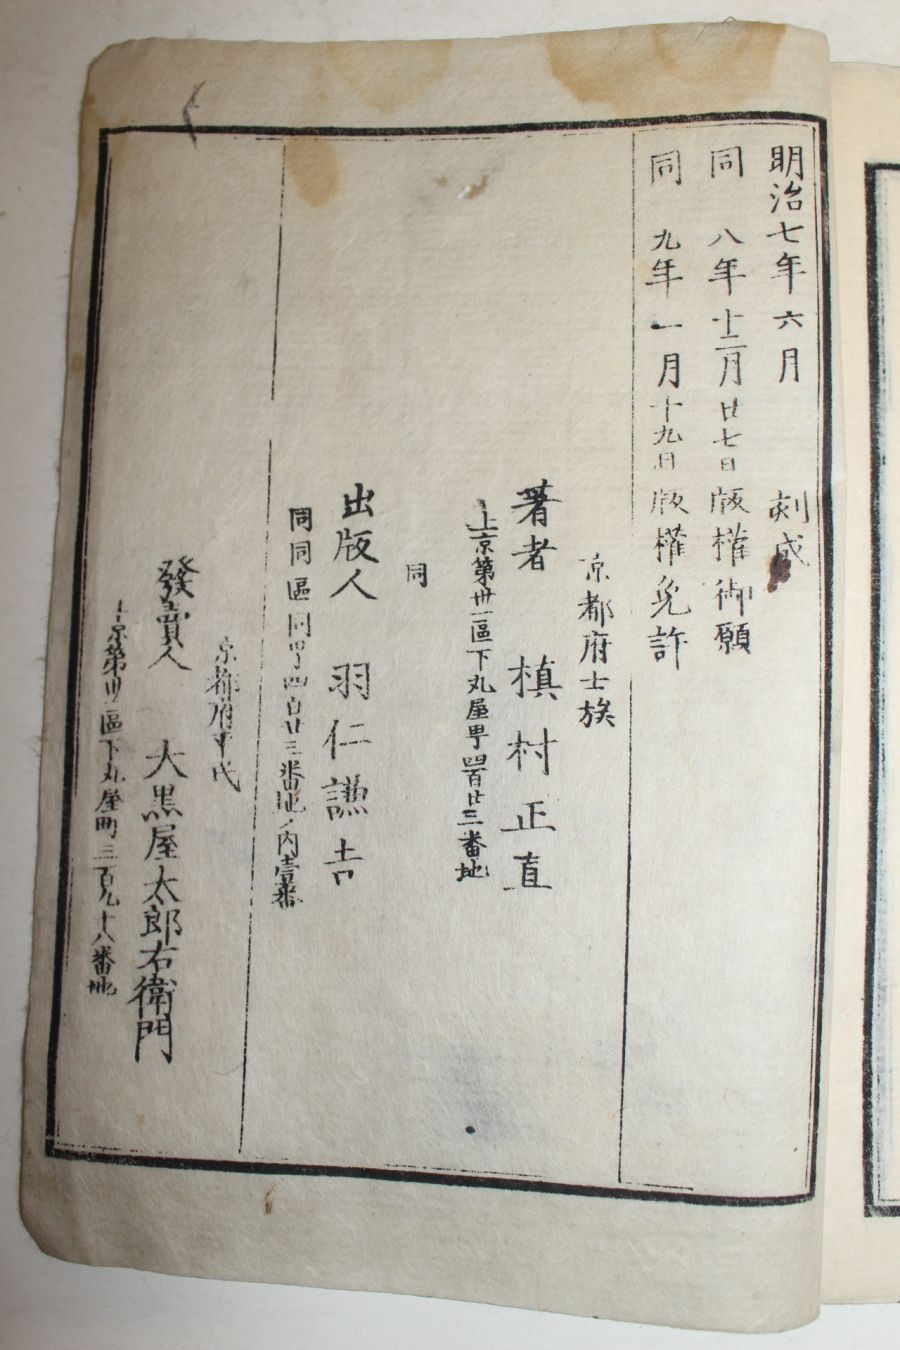 明治七年六月 刻成
同 八年十二月廿七日 版權御願
同 九年一月十九日 版權免許
京都府士族
著者 槙村正直
上京第卅一區下丸屋町四百廿三番地
同
出版人 羽仁謙吉
同同區同町四百廿三番地ノ内壹番
京都府平民
發賣人 大黒屋太郎右衛門
上京第卅一區下丸屋町三百九十八番地